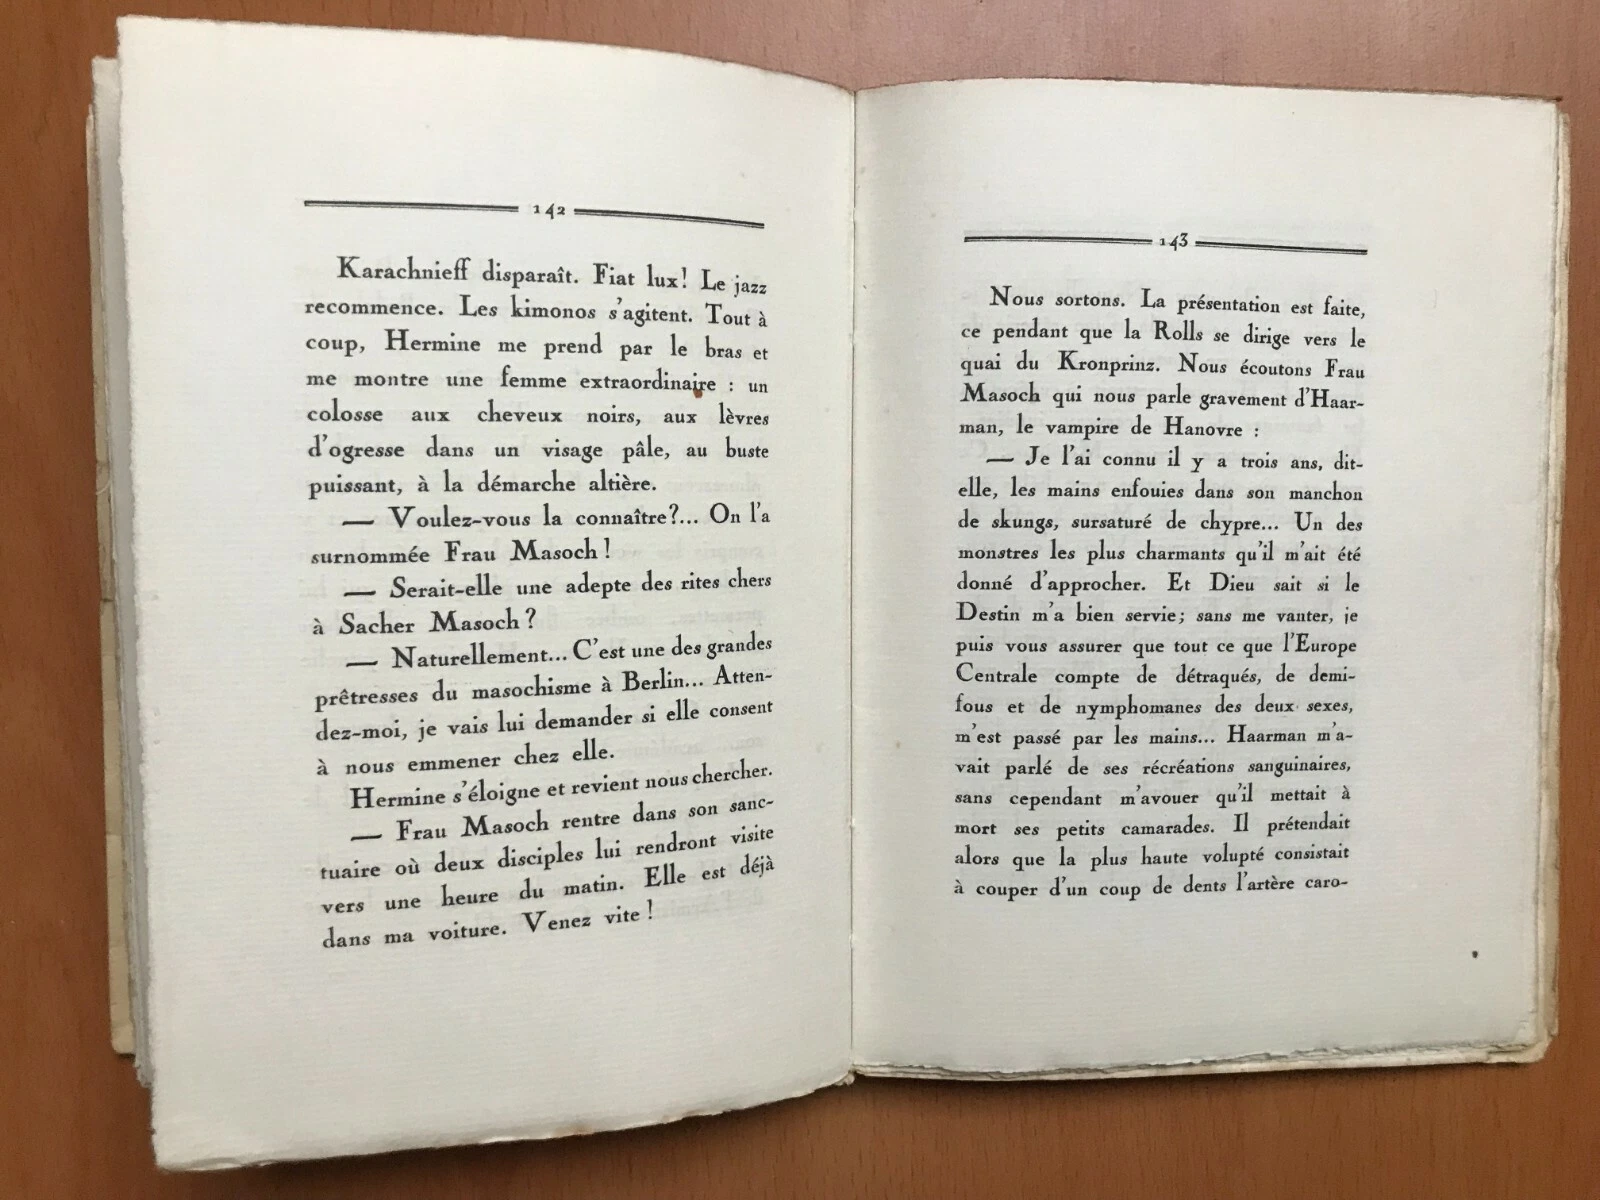 142
Karachnieff disparaît. Fiat lux! Le jazz
recommence. Les kimonos s'agitent. Tout à
coup, Hermine me prend par le bras et
me montre une femme extraordinaire : un
colosse aux cheveux noirs, aux lèvres
d'ogresse dans un visage pâle, au buste
puissant, à la démarche altière.
— Voulez-vous la connaître?... On l'a
surnommée Frau Masoch!
— Serait-elle une adepte des rites chers
à Sacher Masoch?
— Naturellement... C'est une des grandes
prêtresses du masochisme à Berlin... Atten-
dez-moi, je vais lui demander si elle consent
à nous emmener chez elle.
Hermine s'éloigne et revient nous chercher.
— Frau Masoch rentre dans son sanc-
tuaire où deux disciples lui rendront visite
vers une heure du matin. Elle est déjà
dans ma voiture. Venez vite!
143
Nous sortons. La présentation est faite,
ce pendant que la Rolls se dirige vers le
quai du Kronprinz. Nous écoutons Frau
Masoch qui nous parle gravement d'Haar-
man, le vampire de Hanovre :
— Je l'ai connu il y a trois ans, dit-
elle, les mains enfouies dans son manchon
de skungs, sursaturé de chypre... Un des
monstres les plus charmants qu'il m'ait été
donné d'approcher. Et Dieu sait si le
Destin m'a bien servie; sans me vanter, je
puis vous assurer que tout ce que l'Europe
Centrale compte de détraqués, de demi-
fous et de nymphomanes des deux sexes,
m'est passé par les mains... Haarman m'a-
vait parlé de ses récréations sanguinaires,
sans cependant m'avouer qu'il mettait à
mort ses petits camarades. Il prétendait
alors que la plus haute volupté consistait
à couper d'un coup de dents l'artère caro-